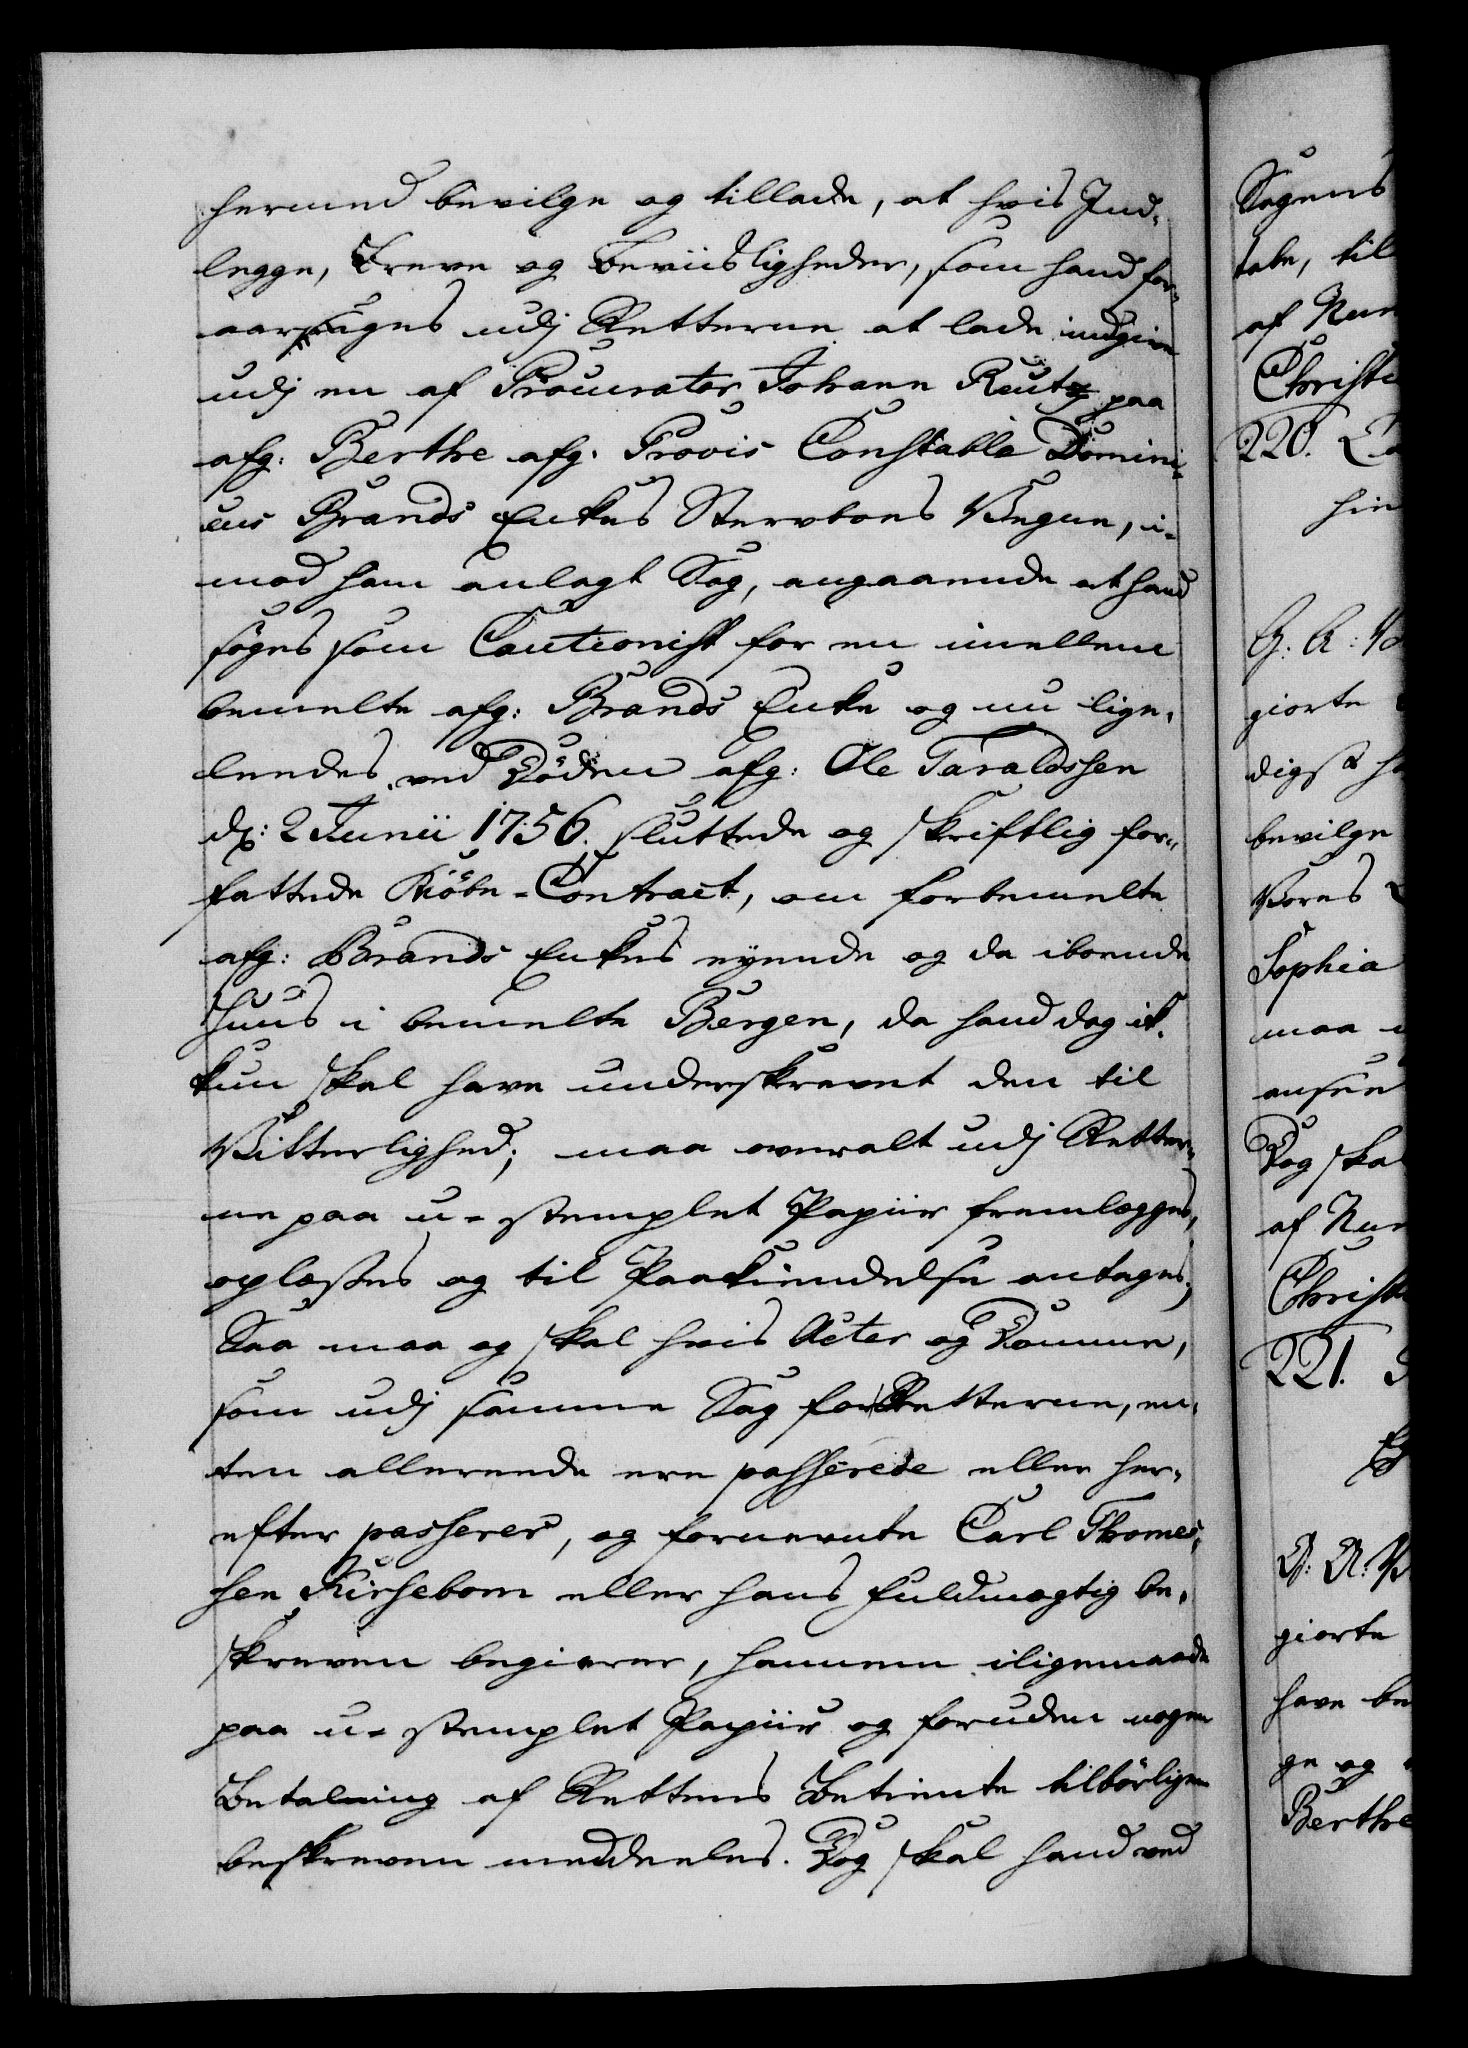 hermed bevilge og tillade, at hvis Ind-
legge, Breve og Beviisligheder, som hand for-
aarsages udj Retterne at lade indgive
udj en af Procurator Johann Reutz paa
afg: Berthe afg. Provis Constable Domini-
cus Brands Enkes Sterboes Vegne, i-
mod ham anlagt Sag, angaaende at hand
søges som Cautionist for en imellem
bemelte afg: Brands Enke og nu lige-
leedes ved Døden afg: Ole Taraldssen
dχ: 2 Junii 1756. sluttede og skriftlig for-
fattede Kiøbe-Contract, om forbemelte
afg: Brands Enkes eyende og da iboende
Huus i bemelte Bergen, da hand dog ik-
kun skal have underskrevet den til
Vitterlighed; maa overalt udj Retter-
ne paa u-stemplet Papiir fremlægges,
oplæses og til Paakiendelse antages;
Saa maa og skal hvis Acter og Domme,
som udj samme Sag for Retterne, en-
ten allereede ere passerede eller her-
efter passerer, og fornevnte Carl Thomes-
sen Kirsebom eller hans fuldmægtig be-
skreven begierer, hannem iligemaade
paa u-stemplet Papiir og foruden nogen
Betalning af Rettens Betiente tilbørligen
beskreven meddeeles. Dog skal hand ved
Sagens
tabe, til
af Num
Christi
220.
hin
giorte
digst
bevilge
Vores
Sophia
maa
ansee
Dog skal
af Num
Christi
221.
giorte
have be
ge og
Berthe